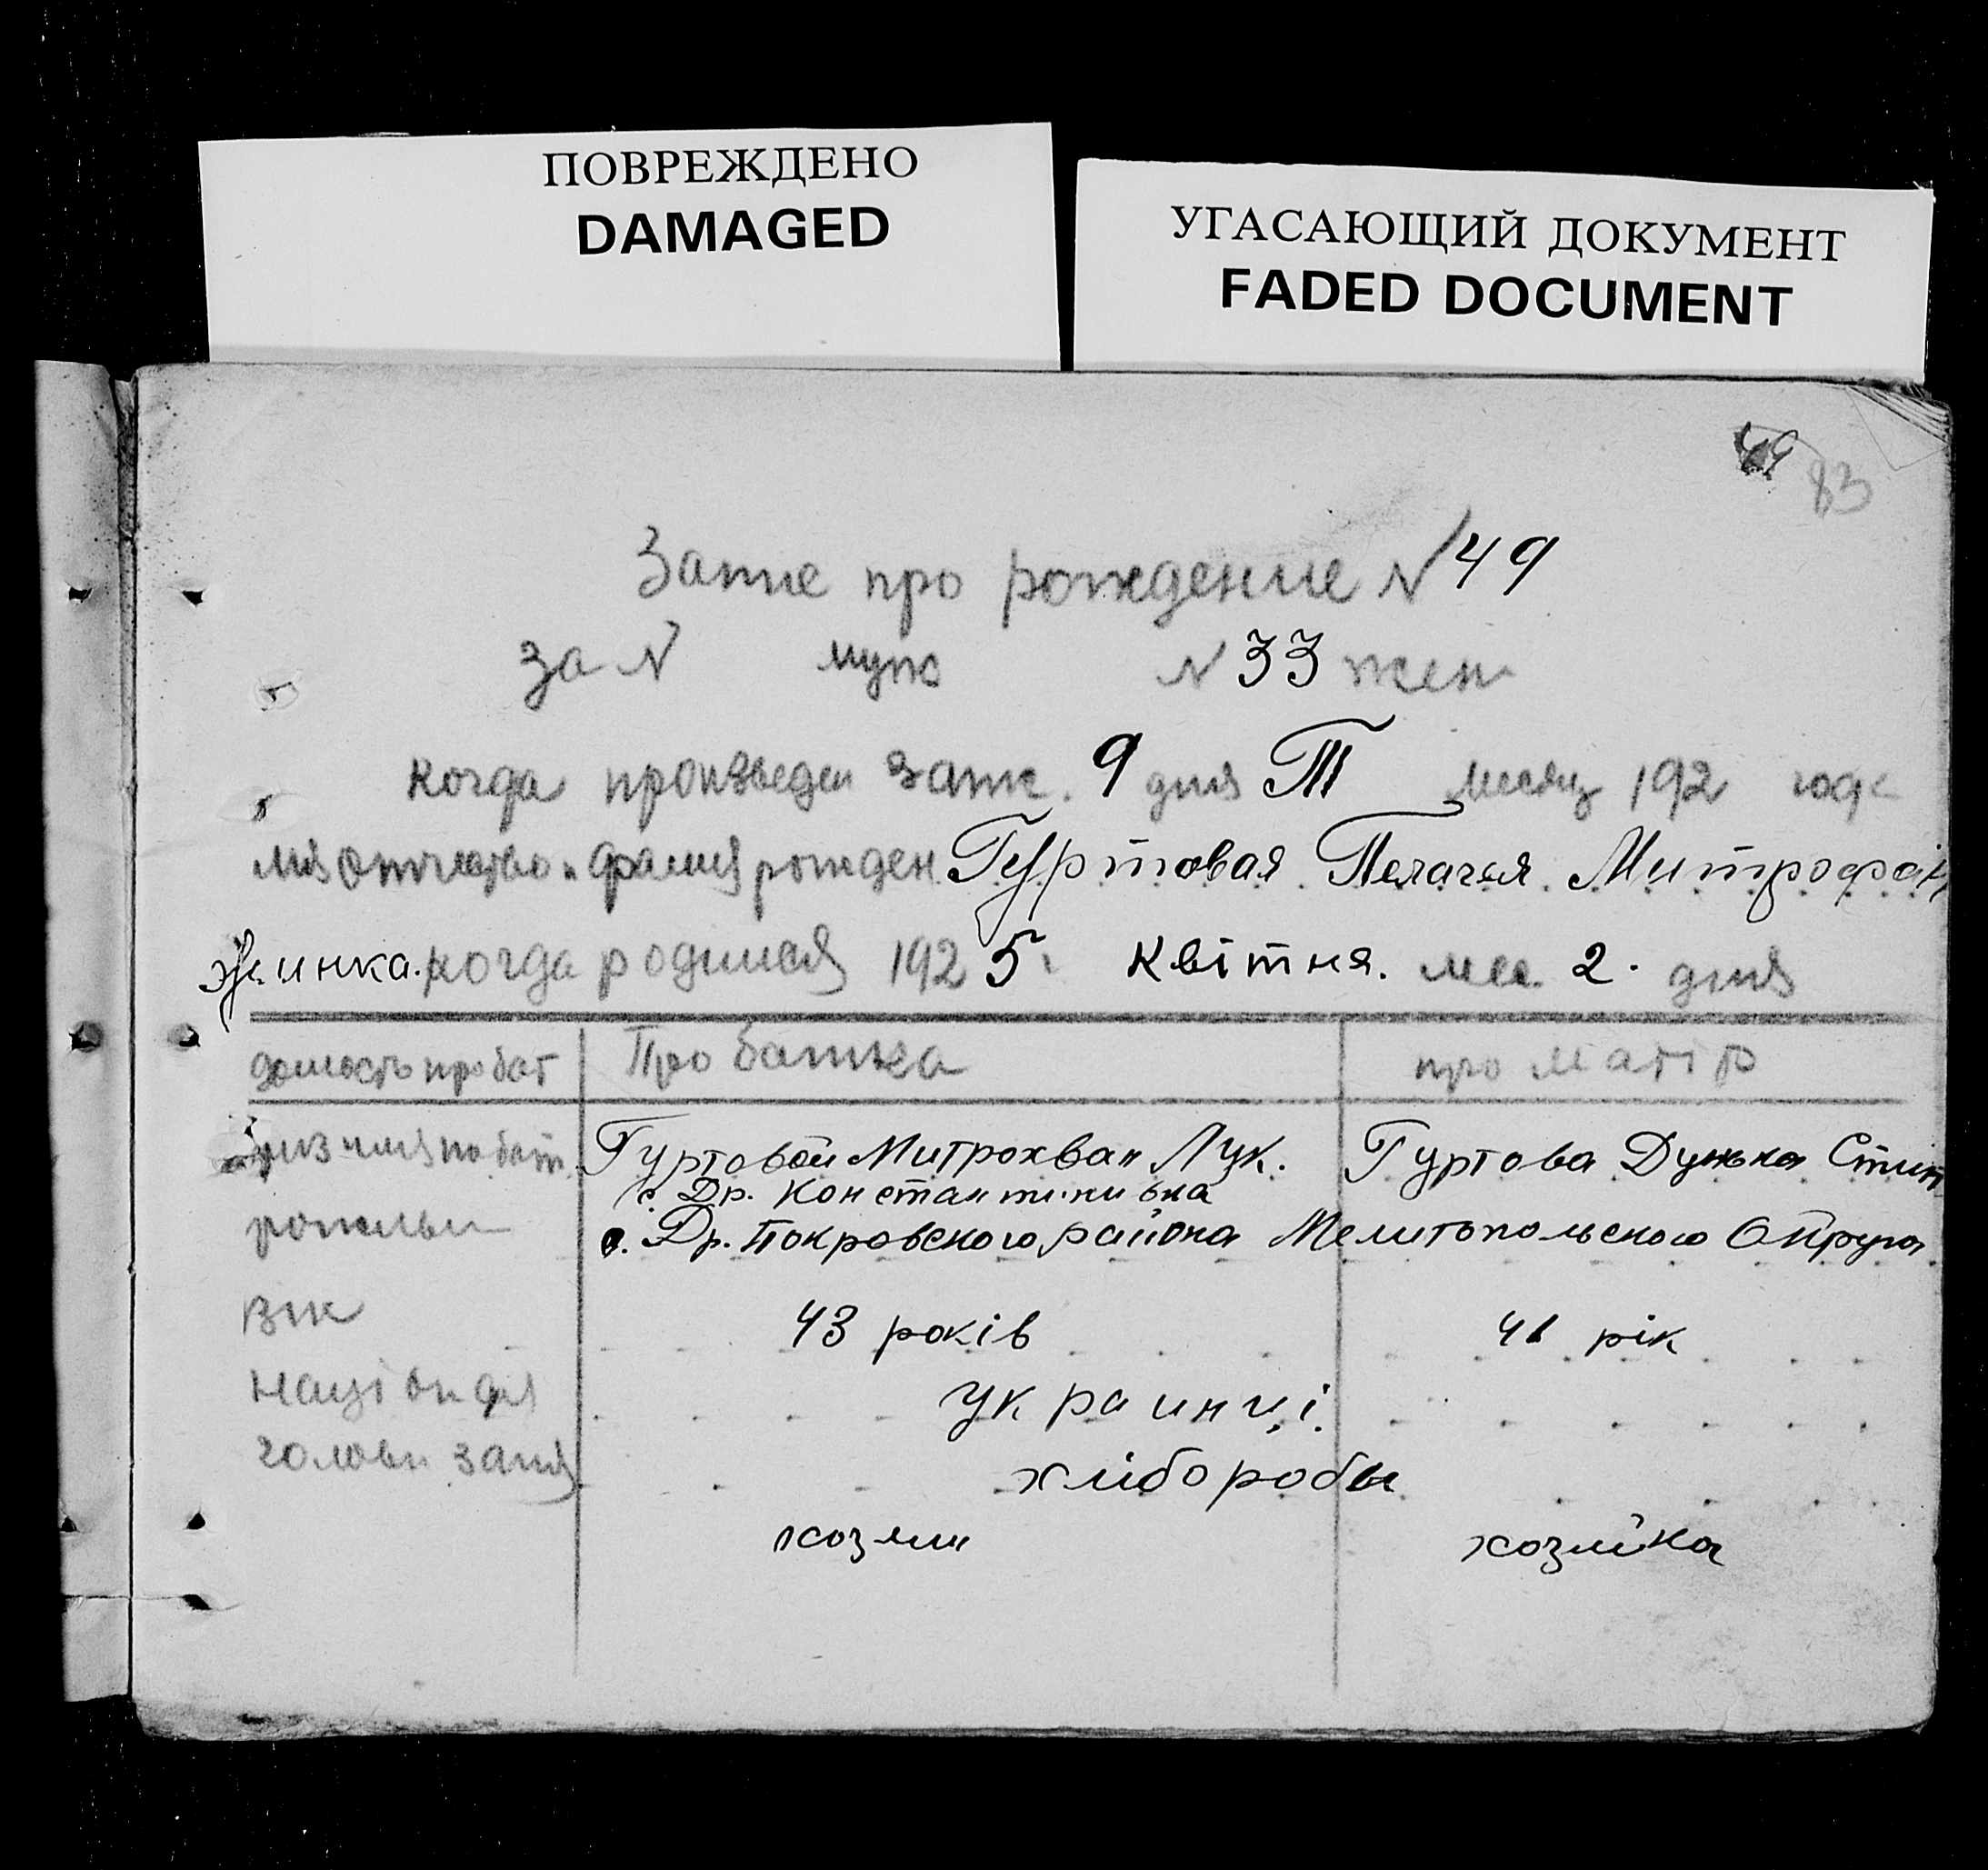 ПОВРЕЖДЕНО
DAMAGED
УГАСАЮЩИЙ ДОКУМЕНТ
FADED DOCUMENT
49
83
Запис про рождение N 49
за N муж N 33 жен
когда произведен запис. 9 дня месяц 192 года
имя отчество и фамия рожден Гуртовая Пелагея Митрофан
жинка. когда родился 1925 г. Квітня. мес. 2. дня
домость про бат Про батька про матір
Гуртовой Митрохван Лук. Гуртова Дунька Стип
с. Др. Константинивка
с. Др. Покровского района Мелитопольского Округа
вік 43 років 41 рік
украинці
голови заня хліборобы
хозяин хозяйка